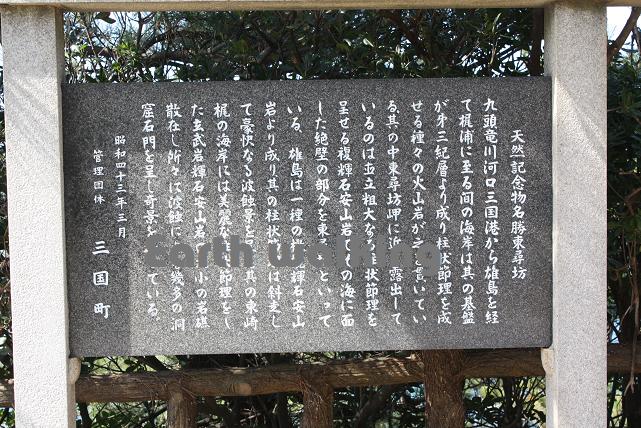 天然記念物名勝東尋坊
九頭竜川河口三国港から雄島を経
て梶浦に至る間の海岸は其の基盤
が第三紀層より成り柱状節理を成
せる種々の火山岩が之を貫いてい
る其の中東尋坊岬に近く露出して
いるのは並立粗大なる柱状節理を
呈せる複輝石安山岩でその海に面
した絶壁の部分を東尋といって
いる、雄島は一種の輝石安山
岩より成り其の柱状節は斜走し
て豪快なる波蝕景を其の東崎
梶の海岸には美麗な節理をし
た玄武岩輝石安山岩小の岩礁
散在し所々に波蝕に幾多の洞
窟石門を呈し奇景をている。
昭和四十三年三月
管理団体 三国町
Earth walking